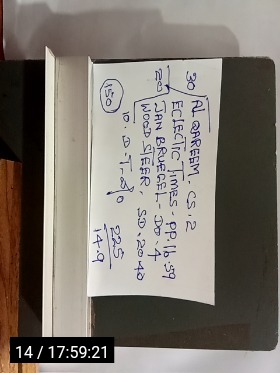 30 AL QAREEM - CS. 2
ECLECTIC TIMES - PP. 16.59
20 JAN BRUEGEL - DO. 4
WOOD STEER. SD. 20 40
10. D. T. 
150
225
14.9
14 / 17:59:21